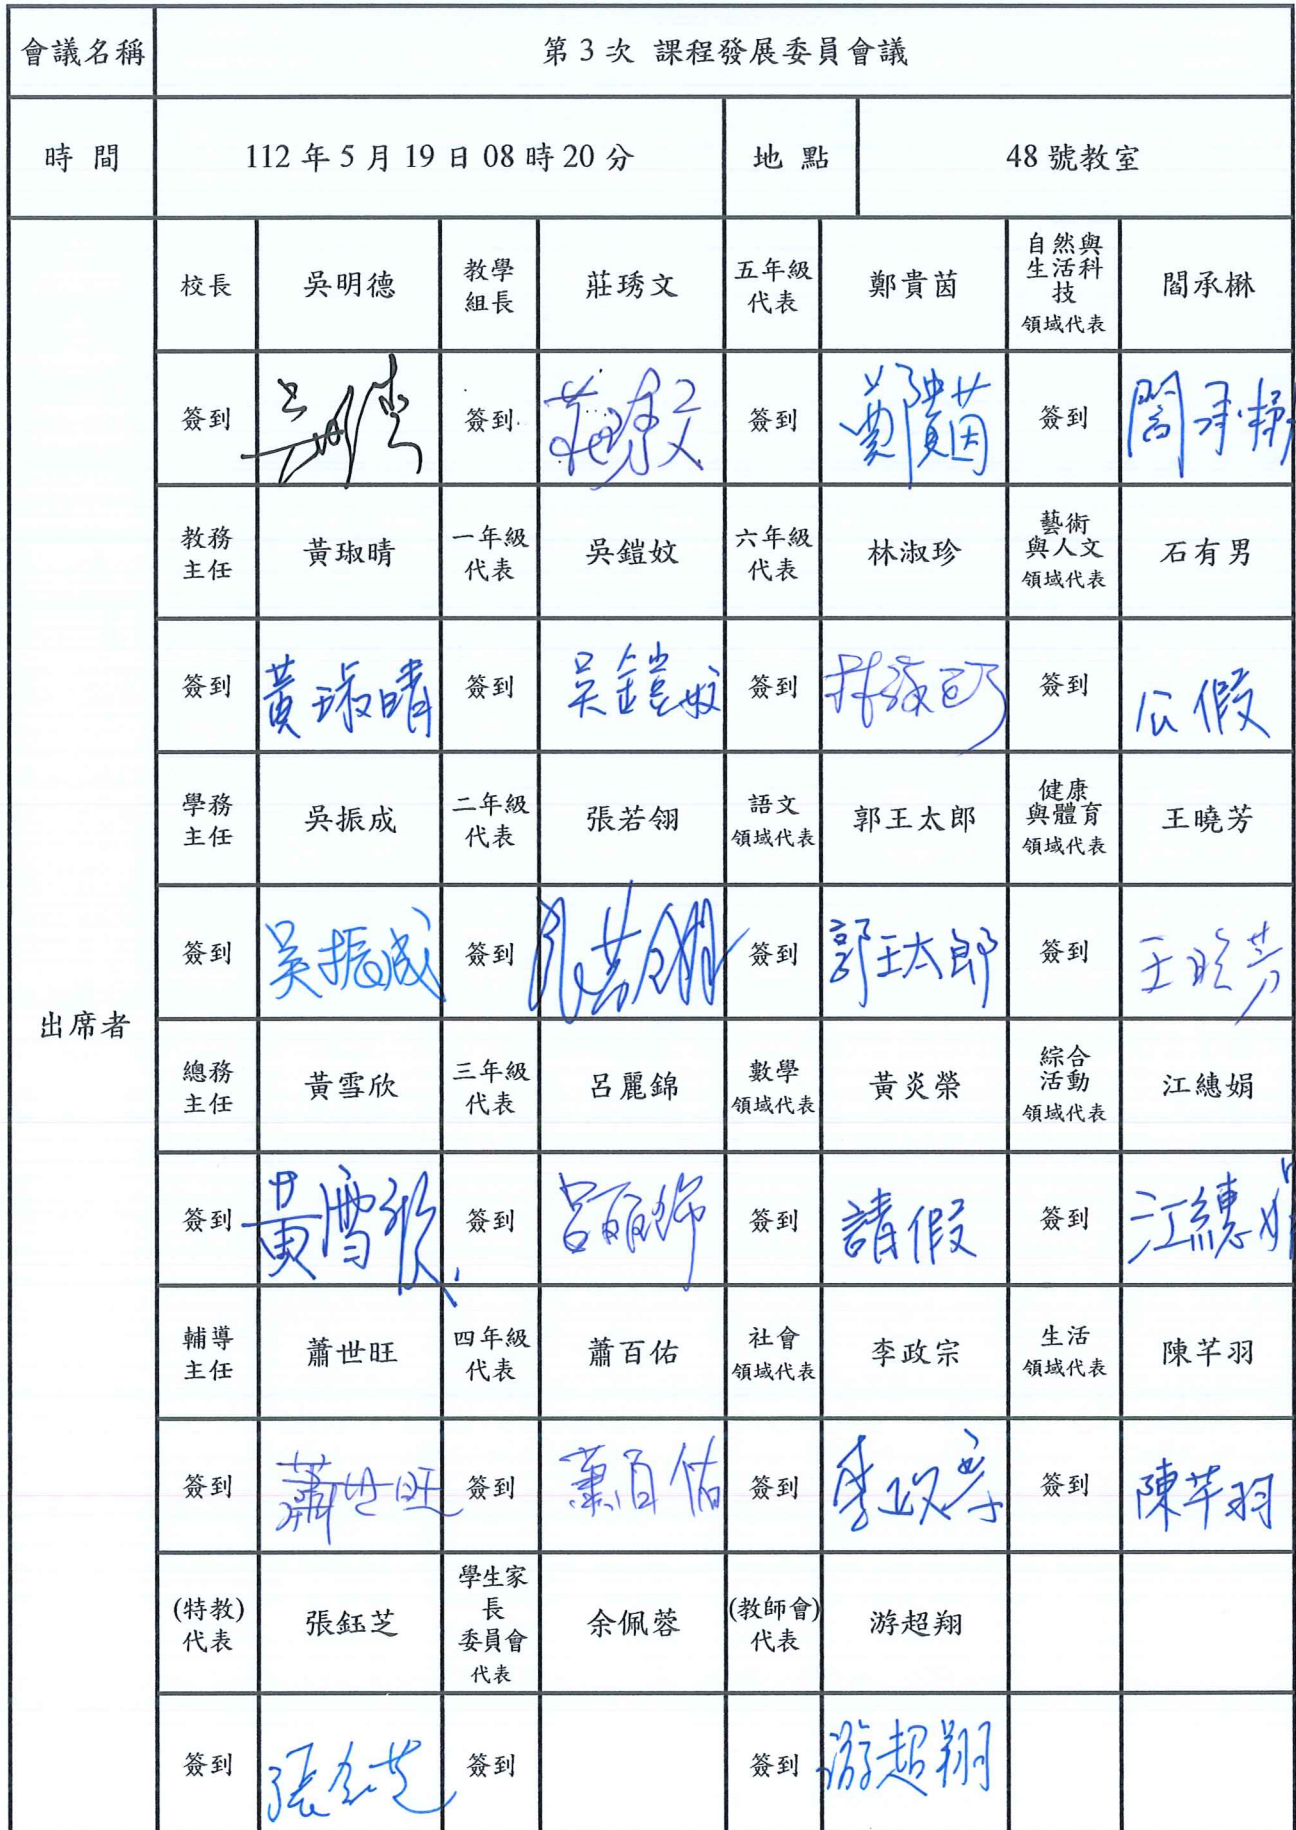 會議名稱 第 3 次 課程發展委員會議
時 間 112 年 5 月 19 日 08 時 20 分 地 點 48 號教室
出席者
校長 吳明德 教學組長 莊琇文 五年級代表 鄭貴茵 自然與生活科技領域代表 閻承楙
簽到 簽到 莊琇文 簽到 鄭貴茵 簽到 閻承楙
教務主任 黃琡晴 一年級代表 吳鎧妏 六年級代表 林淑珍 藝術與人文領域代表 石有男
簽到 黃琡晴 簽到 吳鎧妏 簽到 林淑珍 簽到 公假
學務主任 吳振成 二年級代表 張若翎 語文領域代表 郭王太郎 健康與體育領域代表 王曉芳
簽到 吳振成 簽到 張若翎 簽到 郭王太郎 簽到 王曉芳
總務主任 黃雪欣 三年級代表 呂麗錦 數學領域代表 黃炎榮 綜合活動領域代表 江繐娟
簽到 黃雪欣 簽到 呂麗錦 簽到 請假 簽到 江繐娟
輔導主任 蕭世旺 四年級代表 蕭百佑 社會領域代表 李政宗 生活領域代表 陳芊羽
簽到 蕭世旺 簽到 蕭百佑 簽到 李政宗 簽到 陳芊羽
(特教)代表 張鈺芝 學生家長委員會代表 余佩蓉 (教師會)代表 游超翔
簽到 張鈺芝 簽到 簽到 游超翔